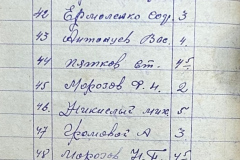 42 Ермоленко Сер. 3
43 Антонцев Вас. 4
44 Пятков Ст. 45
45 Морозов Ф. Н. 2
46. Никислый мих 5
47 Громовой А 3
48 Морозов Н. П. 45